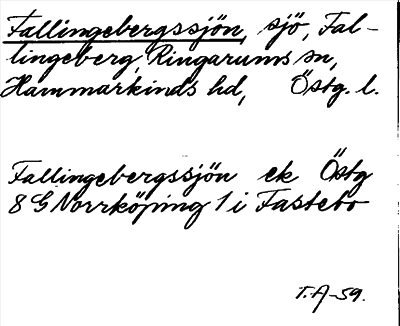 Fallingebergssjön, sjö, Fal-
lingeberg, Ringarums sn,
Hammarkinds hd, Östg. l.
Fallingebergssjön ek Östg
8 G Norrköping 1 i Fastebo
T.A-59.